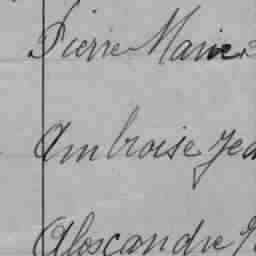 Pierre Marie
Ambroise Jea
Aloscandre